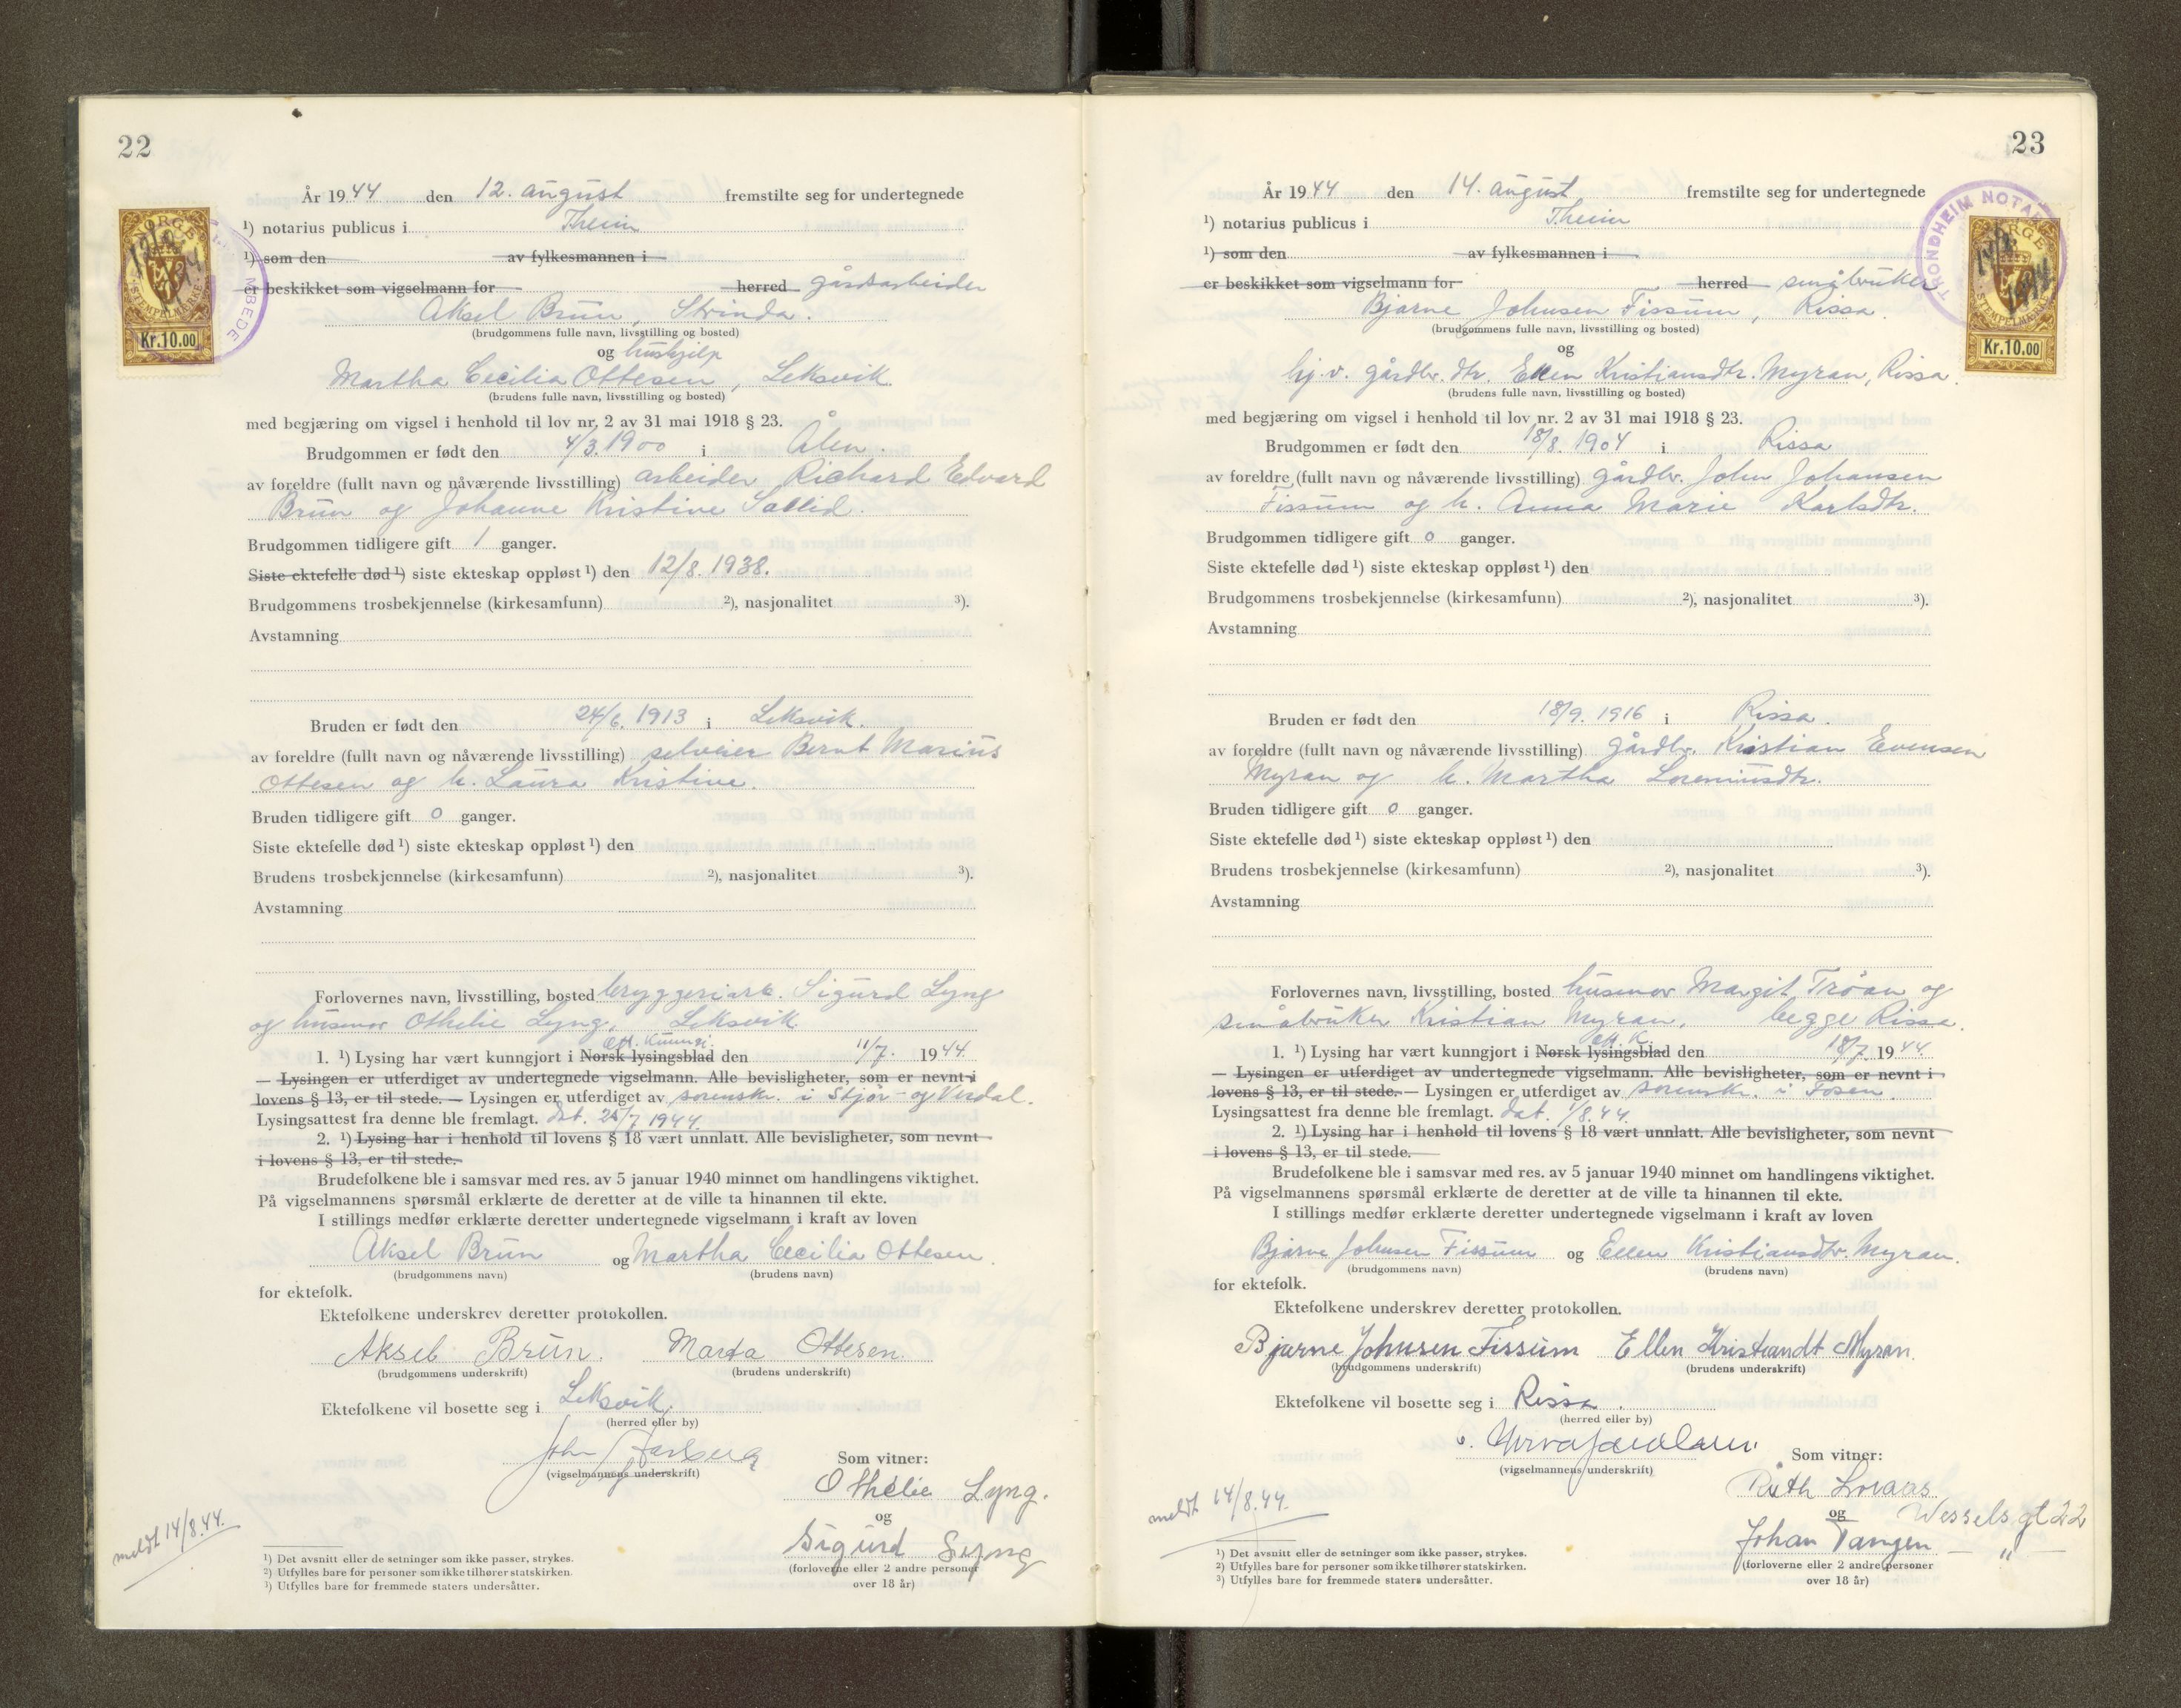 22
År 1944 den 12. august fremstilte seg for undertegnede
¹) notarius publicus i Theim
¹) som den av fylkesmannen i
er beskikket som vigselmann for herred gårdsarbeider
Aksel Brun, Strinda.
(brudgommens fulle navn, livsstilling og bosted)
og hushjelp
Martha Cecilia Ottesen, Leksvik.
(brudens fulle navn, livsstilling og bosted)
med begjæring om vigsel i henhold til lov nr. 2 av 31 mai 1918 § 23.
Brudgommen er født den 4/3.1900 i Ålen.
av foreldre (fullt navn og nåværende livsstilling) arbeider Richard Edvard
Brun og Johanne Kristine
Brudgommen tidligere gift 1 ganger.
Siste ektefelle død ¹) siste ekteskap oppløst ¹) den 12/8. 1938.
Brudgommens trosbekjennelse (kirkesamfunn) ²), nasjonalitet ³).
Avstamning
Bruden er født den 24/6. 1913 i Leksvik.
av foreldre (fullt navn og nåværende livsstilling) selveier Bernt Marius
Ottesen og h. Laura Kristine.
Bruden tidligere gift 0 ganger.
Siste ektefelle død ¹) siste ekteskap oppløst ¹) den
Brudens trosbekjennelse (kirkesamfunn) ²), nasjonalitet ³).
Avstamning
Forlovernes navn, livsstilling, bosted bryggeriarb. Sigurd Lyng
og husmor Othelie Lyng, Leksvik
off. Kunngj.
1. ¹) Lysing har vært kunngjort i Norsk lysingsblad den 11/7. 1944.
— Lysingen er utferdiget av undertegnede vigselmann. Alle bevisligheter, som er nevnt i
lovens § 13, er til stede. — Lysingen er utferdiget av sorenskr. i Stjør- og Verdal.
Lysingsattest fra denne ble fremlagt. dat. 25/7 1944.
2. ¹) Lysing har i henhold til lovens § 18 vært unnlatt. Alle bevisligheter, som nevnt
i lovens § 13, er til stede.
Brudefolkene ble i samsvar med res. av 5 januar 1940 minnet om handlingens viktighet.
På vigselmannens spørsmål erklærte de deretter at de ville ta hinannen til ekte.
I stillings medfør erklærte deretter undertegnede vigselmann i kraft av loven
Aksel Brun og Martha Cecilia Ottesen.
(brudgommens navn) (brudens navn)
for ektefolk.
Ektefolkene underskrev deretter protokollen.
Aksel Brun. Marta Ottesen.
(brudgommens underskrift) (brudens underskrift)
Ektefolkene vil bosette seg i Leksvik.
(herred eller by)
John
(vigselmannens underskrift)
Som vitner:
Othelie Lyng.
og
Sigurd Lyng
(forloverne eller 2 andre personer
over 18 år)
meldt 14/8.44.
¹) Det avsnitt eller de setninger som ikke passer, strykes.
²) Utfylles bare for personer som ikke tilhører statskirken.
³) Utfylles bare for fremmede staters undersåtter.
NORGE
STEMPELMERKE
Kr.10.00
MBEDE
23
År 1944 den 14. august fremstilte seg for undertegnede
¹) notarius publicus i Theim
¹) som den av fylkesmannen i
er beskikket som vigselmann for herred småbruker
Bjarne Johnsen Fissum, Rissa.
(brudgommens fulle navn, livsstilling og bosted)
og
hj.v. gårdbr. dtr. Ellen Kristiansdtr. Myran, Rissa.
(brudens fulle navn, livsstilling og bosted)
med begjæring om vigsel i henhold til lov nr. 2 av 31 mai 1918 § 23.
Brudgommen er født den 18/8. 1904 i Rissa
av foreldre (fullt navn og nåværende livsstilling) gårdbr. John Johansen
Fissum og h. Anna Marie Karlsdtr.
Brudgommen tidligere gift 0 ganger.
Siste ektefelle død ¹) siste ekteskap oppløst ¹) den
Brudgommens trosbekjennelse (kirkesamfunn) ²), nasjonalitet ³).
Avstamning
Bruden er født den 18/9. 1916 i Rissa.
av foreldre (fullt navn og nåværende livsstilling) gårdbr. Kristian Evensen
Myran og h. Martha Loreniusdtr.
Bruden tidligere gift 0 ganger.
Siste ektefelle død ¹) siste ekteskap oppløst ¹) den
Brudens trosbekjennelse (kirkesamfunn) ²), nasjonalitet ³).
Avstamning
Forlovernes navn, livsstilling, bosted husmor Margit Trøan og
småbruker Kristian Myran, begge Rissa.
off. K.
1. ¹) Lysing har vært kunngjort i Norsk lysingsblad den 18/7. 1944.
— Lysingen er utferdiget av undertegnede vigselmann. Alle bevisligheter, som er nevnt i
lovens § 13, er til stede. — Lysingen er utferdiget av sorenskr. i Fosen.
Lysingsattest fra denne ble fremlagt. dat. 1/8.44.
2. ¹) Lysing har i henhold til lovens § 18 vært unnlatt. Alle bevisligheter, som nevnt
i lovens § 13, er til stede.
Brudefolkene ble i samsvar med res. av 5 januar 1940 minnet om handlingens viktighet.
På vigselmannens spørsmål erklærte de deretter at de ville ta hinannen til ekte.
I stillings medfør erklærte deretter undertegnede vigselmann i kraft av loven
Bjarne Johnsen Fissum og Ellen Kristiansdtr. Myran.
(brudgommens navn) (brudens navn)
for ektefolk.
Ektefolkene underskrev deretter protokollen.
Bjarne Johnsen Fissum Ellen Kristiandt Myran.
(brudgommens underskrift) (brudens underskrift)
Ektefolkene vil bosette seg i Rissa.
(herred eller by)
(vigselmannens underskrift)
Som vitner:
Ruth Lovaas
og Wessels gt 22
Johan Tangen — " —
(forloverne eller 2 andre personer
over 18 år)
meldt 14/8.44.
¹) Det avsnitt eller de setninger som ikke passer, strykes.
²) Utfylles bare for personer som ikke tilhører statskirken.
³) Utfylles bare for fremmede staters undersåtter.
TRONDHEIM NOTAR
NORGE
STEMPELMERKE
Kr.10.00